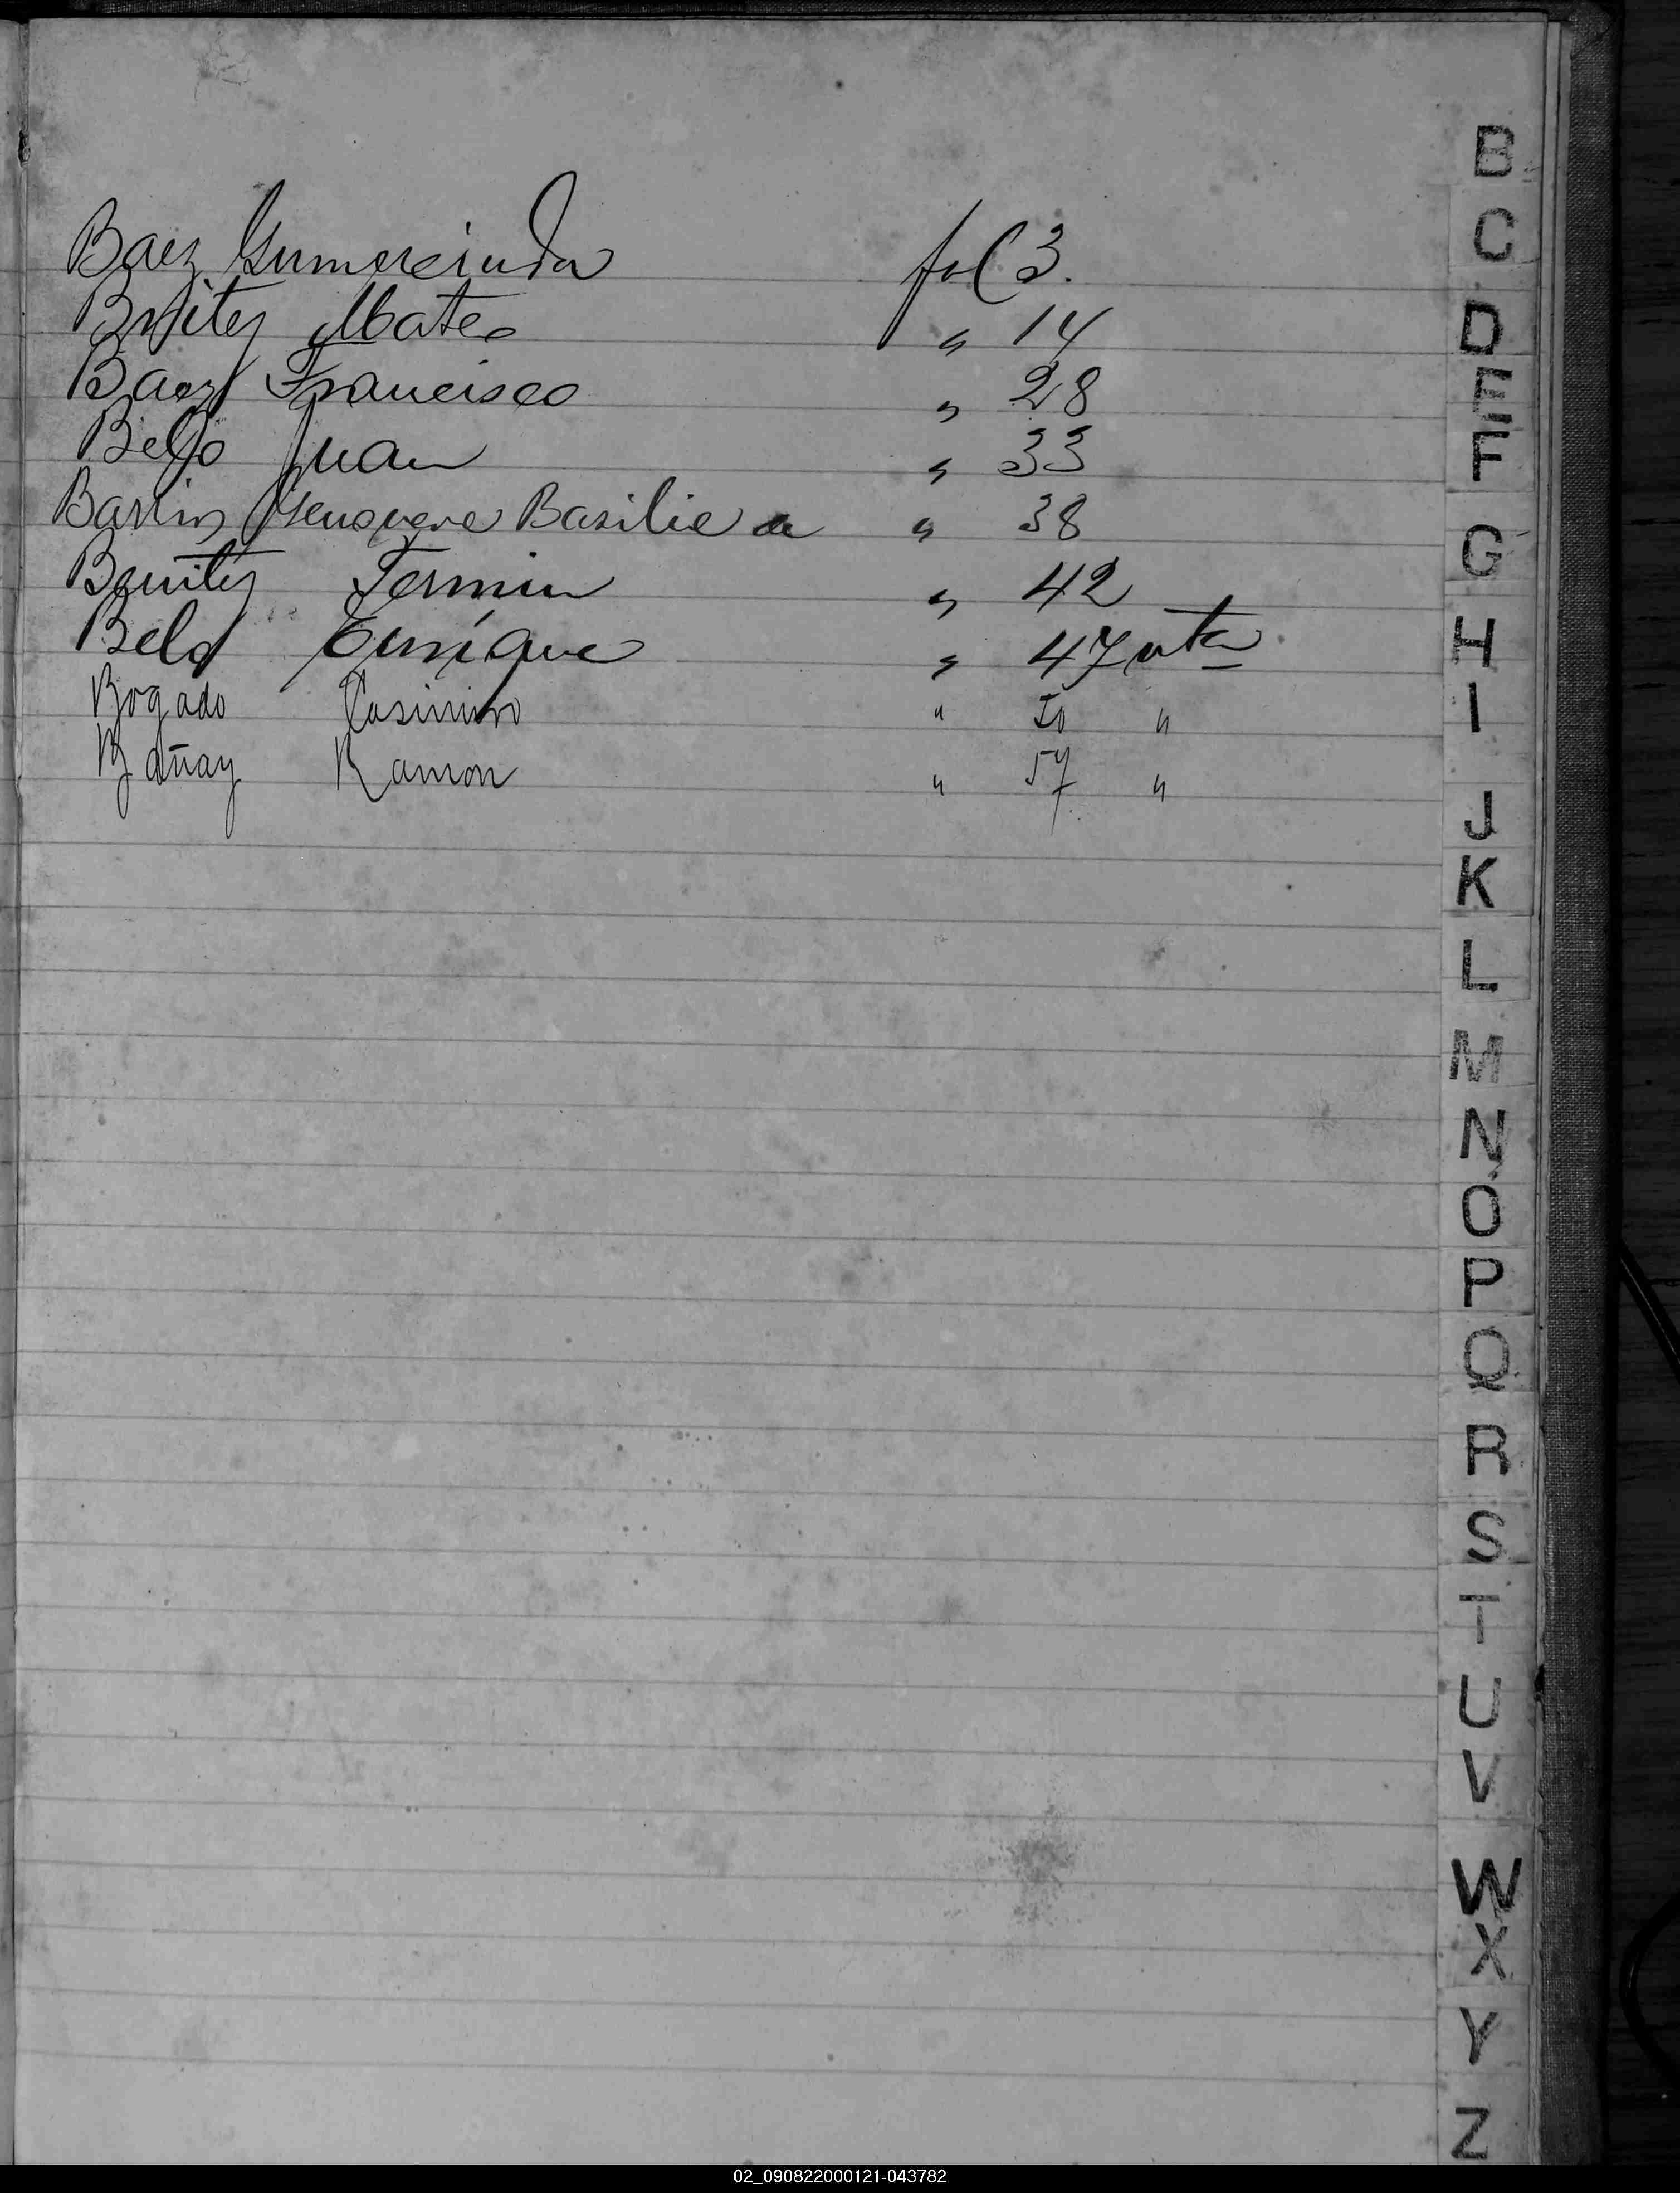 Baez Gumercinda fol 3.
Benitez Mateo " 14
Baez Francisco " 28
Bello Juan " 33
Basilie a " 38
Benitez Fermin " 42
Belo Enrique " 47 vta
Bogado Casimiro " 50 "
Bañay Ramon " 57 "
B
C
D
E
F
G
H
I
J
K
L
M
N
O
P
Q
R
S
T
U
V
W
X
Y
Z
02_090822000121-043782